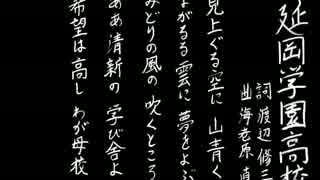 延岡学園高校
詞 渡辺修三
曲 海老原直
見上ぐる空に 山青く
ながるる雲に 夢をよぶ
みどりの風の 吹くところ
ああ清新の 学び舎よ
希望は高し わが母校